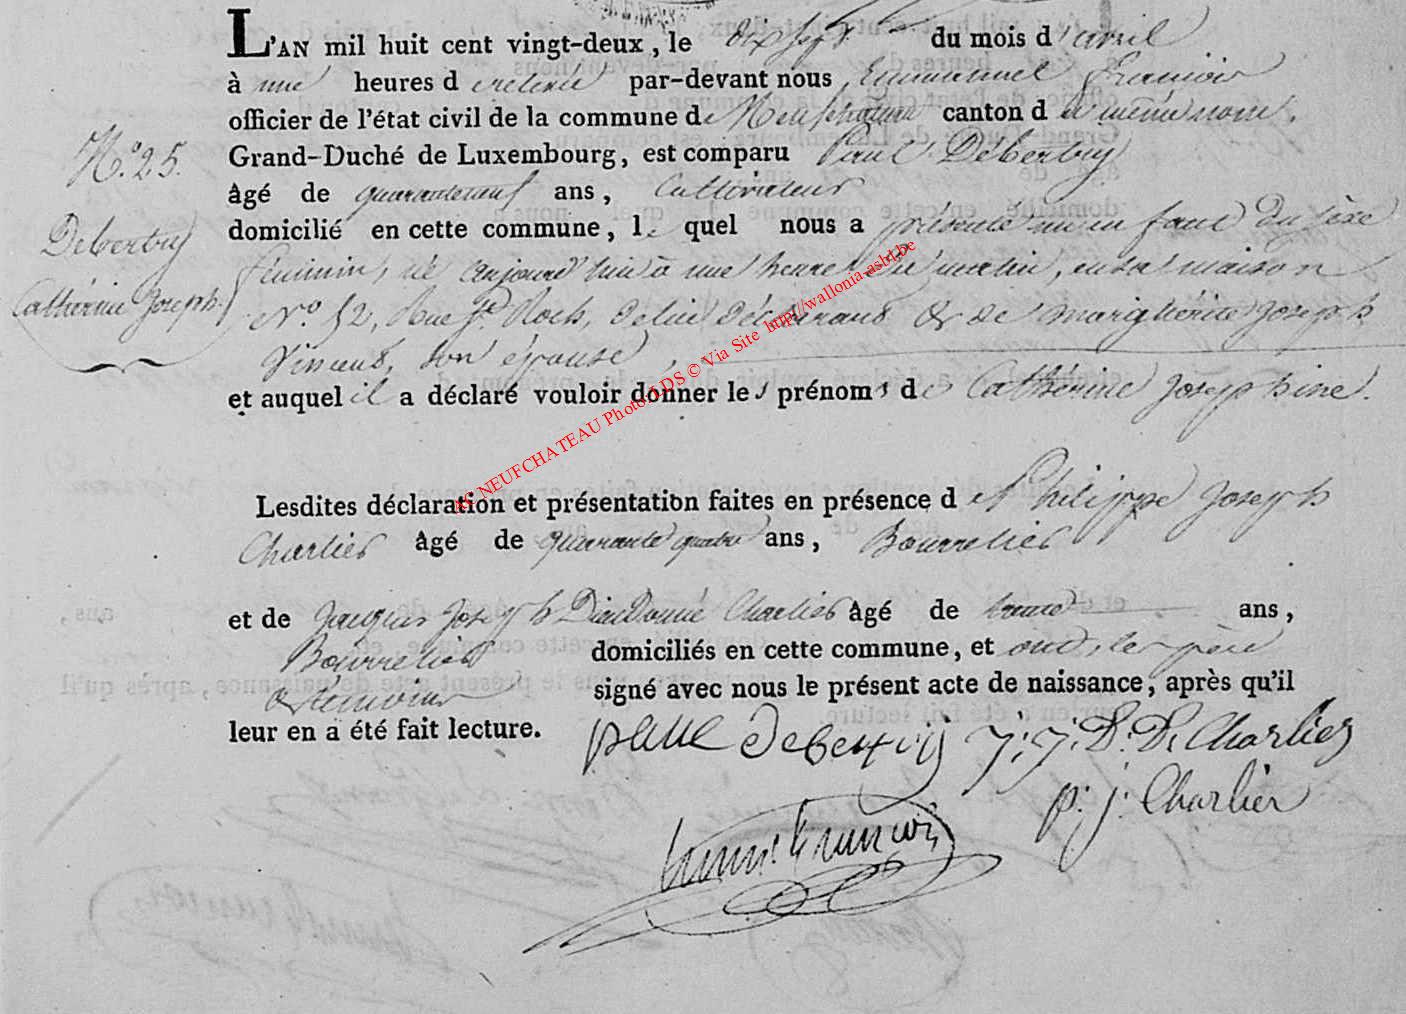 L'AN mil huit cent vingt-deux, le dix sept du mois d'avril
à une heures d e relevée par-devant nous Emmanuel François
officier de l'état civil de la commune de Neufchateau canton d u même nom.
Grand-Duché de Luxembourg, est comparu Paul Deberbuy
âgé de quaranteneuf ans, Cultivateur
domicilié en cette commune, le quel nous a présenté un enfant du sèxe
féminin, né aujourd'hui à une heure du matin, en sa maison
N.º 52, Rue St. Roch, de lui déclarant & de Marguérite Joseph
Vincent, son épouse,
et auquel il a déclaré vouloir donner les prénoms de Cathérine Josephine.
N.º 25.
Deberbuy
Cathérine Joseph.
Lesdites déclaration et présentation faites en présence d e Philippe Joseph
Charlier âgé de quarante quatre ans, Bourrelier
et de Jacques Joseph Dieudonné Charlier âgé de trente ans,
Bourrelier domiciliés en cette commune, et ont, les père
& témoins signé avec nous le présent acte de naissance, après qu'il
leur en a été fait lecture.
paul deberbuy j. j. D. D. Charlier
p. j. Charlier
Emml François
AC NEUFCHATEAU Photo ADS © Via Site http://wallonia-asbl.be